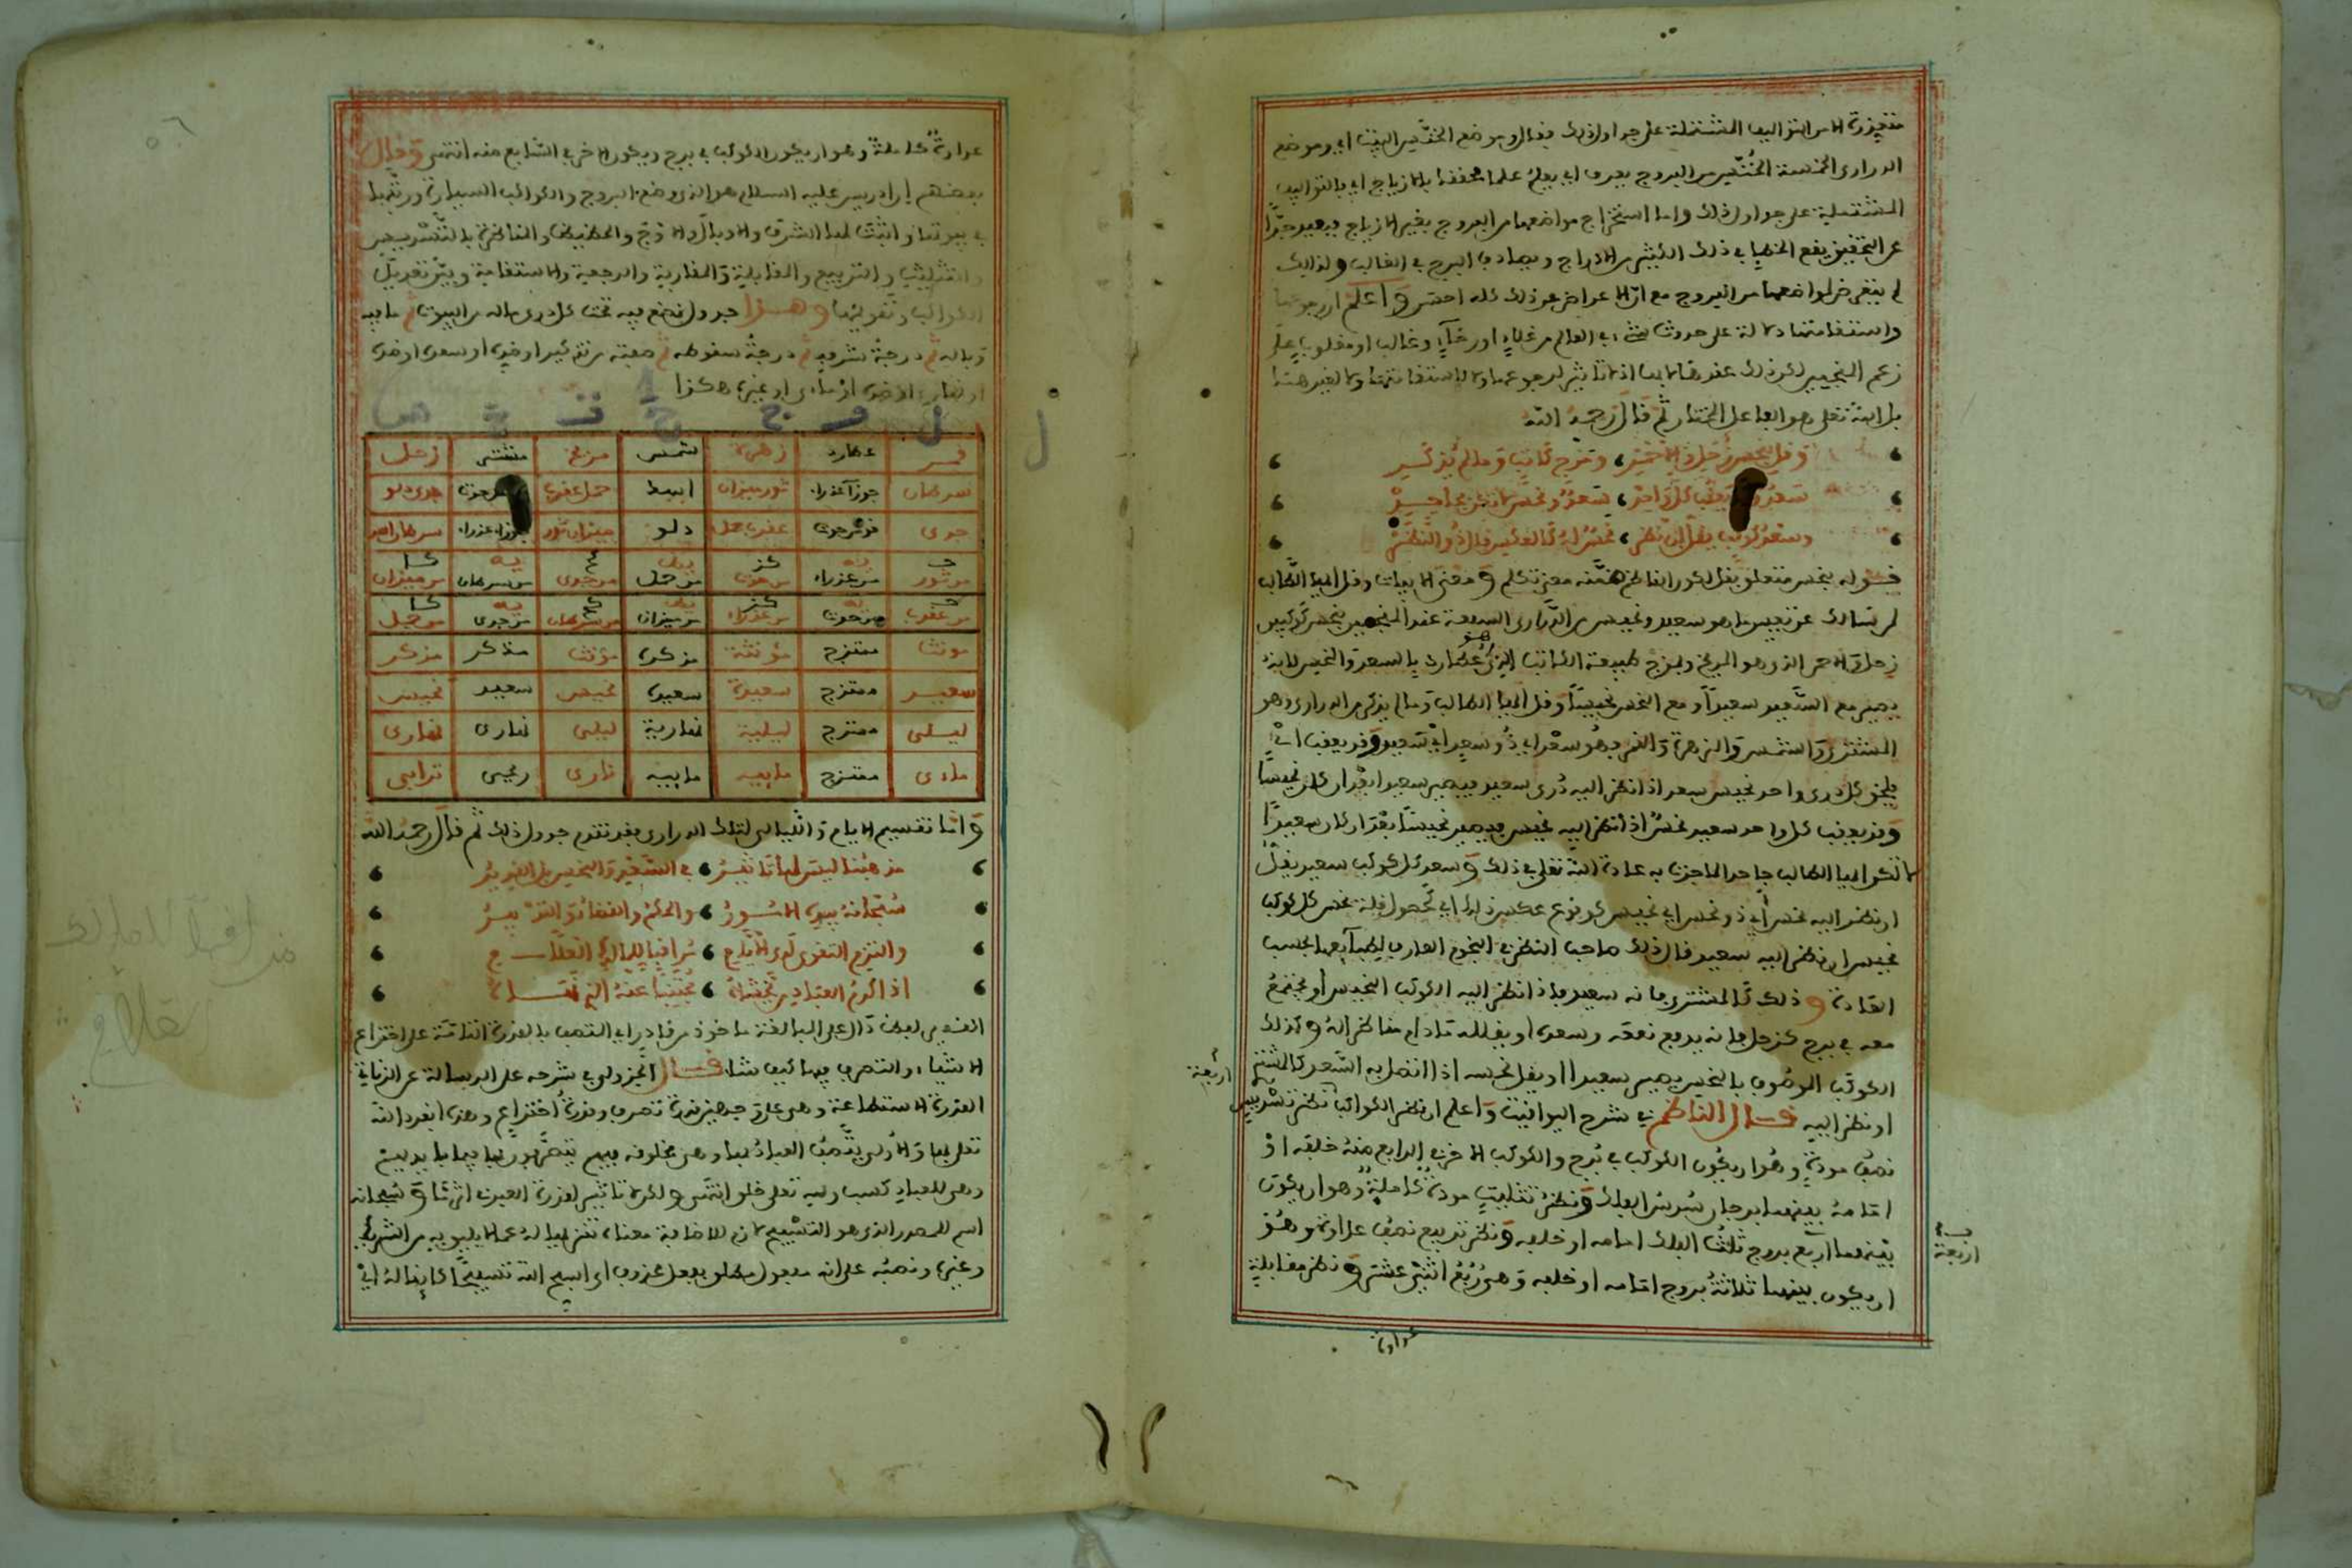 متيزرة الا من التواليف المشتملة على جداول ذلك فقال وموضع الخنّس البيت اي وموضع
الدراري الخمسة الخُنّس من البروج يعرف اي يعلم علما محققا بالازياج اي بالتواليف
المشتملة على جداول ذلك واما استخراج مواضعها من البروج بغير الازياج فبعيد جدّا
عن التحقيق يقع الخطا في ذلك الكثير من الادراج ويصادف البرج في الغالب ولذلك
لم يتعرض لمواضعها من البروج مع انّ الاعراض عن ذلك كله احسن واعلم ان رجوعها
واستقامتها دلالة على حدوث شيء في العالم من غلاء او رخاء وغالب او مغلوب على
زعم المنجمين لكن ذلك عندنا لا تاثير لرجوعها ولا لاستقامتها ولا لغير هذا
بل الله تعلى هو الفاعل المختار ثم قال رحمه الله
وقل بنحس زحل والاحمر ، ومزج كاتب وما لم يذكر
سعد وقد يعقب كل واحد ، سعد ونحس
وسعد كوكب يقل ان نظر ، نحس له كالعكس قال ذو النظر
فقوله بنحس متعلق بقل لكون الناظم ضمّنه معنى تكلم ومعنى الابيات وقل ايها الطالب
لمن سالك عن تمييز ما هو سعيد ونحيس من الدراري السبعة عند المنجمين بنحس كوكبين
زحل والاحمر الذي هو المريخ وبمزج طبيعة الكاتب الذي هو عطارد بالسعد والنحس لانه
يصير مع السعيد سعيدا ومع النحس نحيسا وقل ايها الطالب وما لم يذكر من الدراري وهو
المشتري والشمس والزهرة والقمر فهو سعد اي ذو سعد اي سعيد وقد يعقب اي
يلحق كل دري واحد نحيس سعد اذا نظر اليه دري سعيد فيصير سعيدا بعد ان كان نحيسا
وقد يعقب كل واحد سعيد نحس اذا نظر اليه نحيس فيصير نحيسا بعد ان كان سعيدا
لا تكن ايها الطالب جاحدا لما جرت به عادة الله تعلى في ذلك وسعد كل كوكب سعيد يقل
ان نظر اليه نحس اي ذو نحس اي نحيس كوقوع عكس ذلك اي كحصول قلة نحس كل كوكب
نحيس ان نظر اليه سعيد قال ذلك صاحب النظر في النجوم العارف بطبايعها بحسب
العادة وذلك كالمشتري فانه سعيد فاذا نظر اليه الكوكب النحيس او مجتمع
معه في برج كزحل فانه يدفع نفعه وسعده او يقلله مادام مناظرا له وكذلك
الكوكب الموصوف بالنحس يصير سعيدا او يقل نحسه اذا اتصل به السعد كالمشتري
او نظر اليه قال الناظم في شرح اليواقيت واعلم ان نظر الكواكب نظر تسديس
نصف مودة وهو ان يكون الكوكب في برج والكوكب الاخر في الرابع منه خلفه او
امامه بينهما برجان سدس الفلك ونظر تثليث مودة كاملة وهو ان يكون
بينهما اربع بروج ثلث الفلك امامه او خلفه ونظر تربيع نصف عداوة وهو
ان يكون بينهما ثلاثة بروج امامه او خلفه وهي ربع اثني عشر ونظر مقابلة
اربعة
اربعة
عداوة
عداوة كاملة وهو ان يكون الكوكب في برج ويكون الاخر في السابع منه انتهى وقال
بعضهم ان ادريس عليه السلام هو الذي وضع البروج والكواكب السيارة ورتبها
في بيوتها واثبت لها الشرف والوبال والاوج والحضيض والمناظرة بالتسديس
والتثليث والتربيع والمقابلة والمقارنة والرجعة والاستقامة وبيّن تعديل
الكواكب وتقويمها وهذا جدول نضع فيه تحت كل دري ماله من البيوت ثم ما فيه
وباله ثم درجة شرفه ثم درجة سقوطه ثم صفته من تذكير او ضده او سعد او ضده
او نهاري او ضده او مائي او غيره هكذا
ل
قمر عطارد زهرة شمس مريخ مشتر زحل
سرطان جوزا عذراء ثور ميزان اسد حمل عقرب حوت جدي دلو
جدي قوس حوت عقرب حمل دلو ميزان ثور جوزاء عذراء سرطان اسد
ج يه كز يط كح يه كا
من ثور من عذراء من حوت من حمل من جدي من سرطان من ميزان
ج يه كز يط كح يه كا
من عقرب من حوت من عذراء من ميزان من سرطان من جدي من حمل
مونث ممتزج مونثة مذكرة مونث مذكر مذكر
سعيد ممتزج سعيدة سعيدة نحيس سعيد نحيس
ليلي ممتزج ليلية نهارية ليلي نهاري نهاري
مائي ممتزج مائية ناري ريحي ترابي
واما تقسيم الايام والليالي لتلك الدراري فقد تقدم جدول ذلك ثم قال رحمه الله
مذهبنا ليس لها تاثير ، في السعد والنحس بل القدير
سبحانه بيده الامور ، والحكم والقضاء والتدبير
والتزم التقوى لدى الابلاج ، مراقبا للمالك الفلاح
اذ اكرم العباد من يخشاه ، مجتنبا عنه الذي نهاه
القدير لفظ دال على المبالغة ماخوذ من قادر اي المتصف بالقدرة التامة على اختراع
الاشياء والتصرف فيها كيف شاء قال الجزولي في شرحه على الرسالة عن الزناتي
القدرة الاستطاعة وهي على وجهين قدرة تصرف وقدرة اختراع وهذه انفرد الله
تعلى بها والاولى يتصف العباد بها وهي مخلوقة فيهم يتصرفون بها فيما يريدون
وهي للعباد كسب ولله تعلى خلق انتهى ولكن لا تاثير لقدرة العبد في اثرها وسبحانه
اسم للمصدر الذي هو التسبيح لازم للاضافة معناه تنزيها له عما لا يليق به من الشريك
وغيره ونصبه على انه مفعول مطلق بفعل محذوف اي اسبح الله تسبيحا كاينا له اي
مراقبا للمالك
الفلاح
٥٦